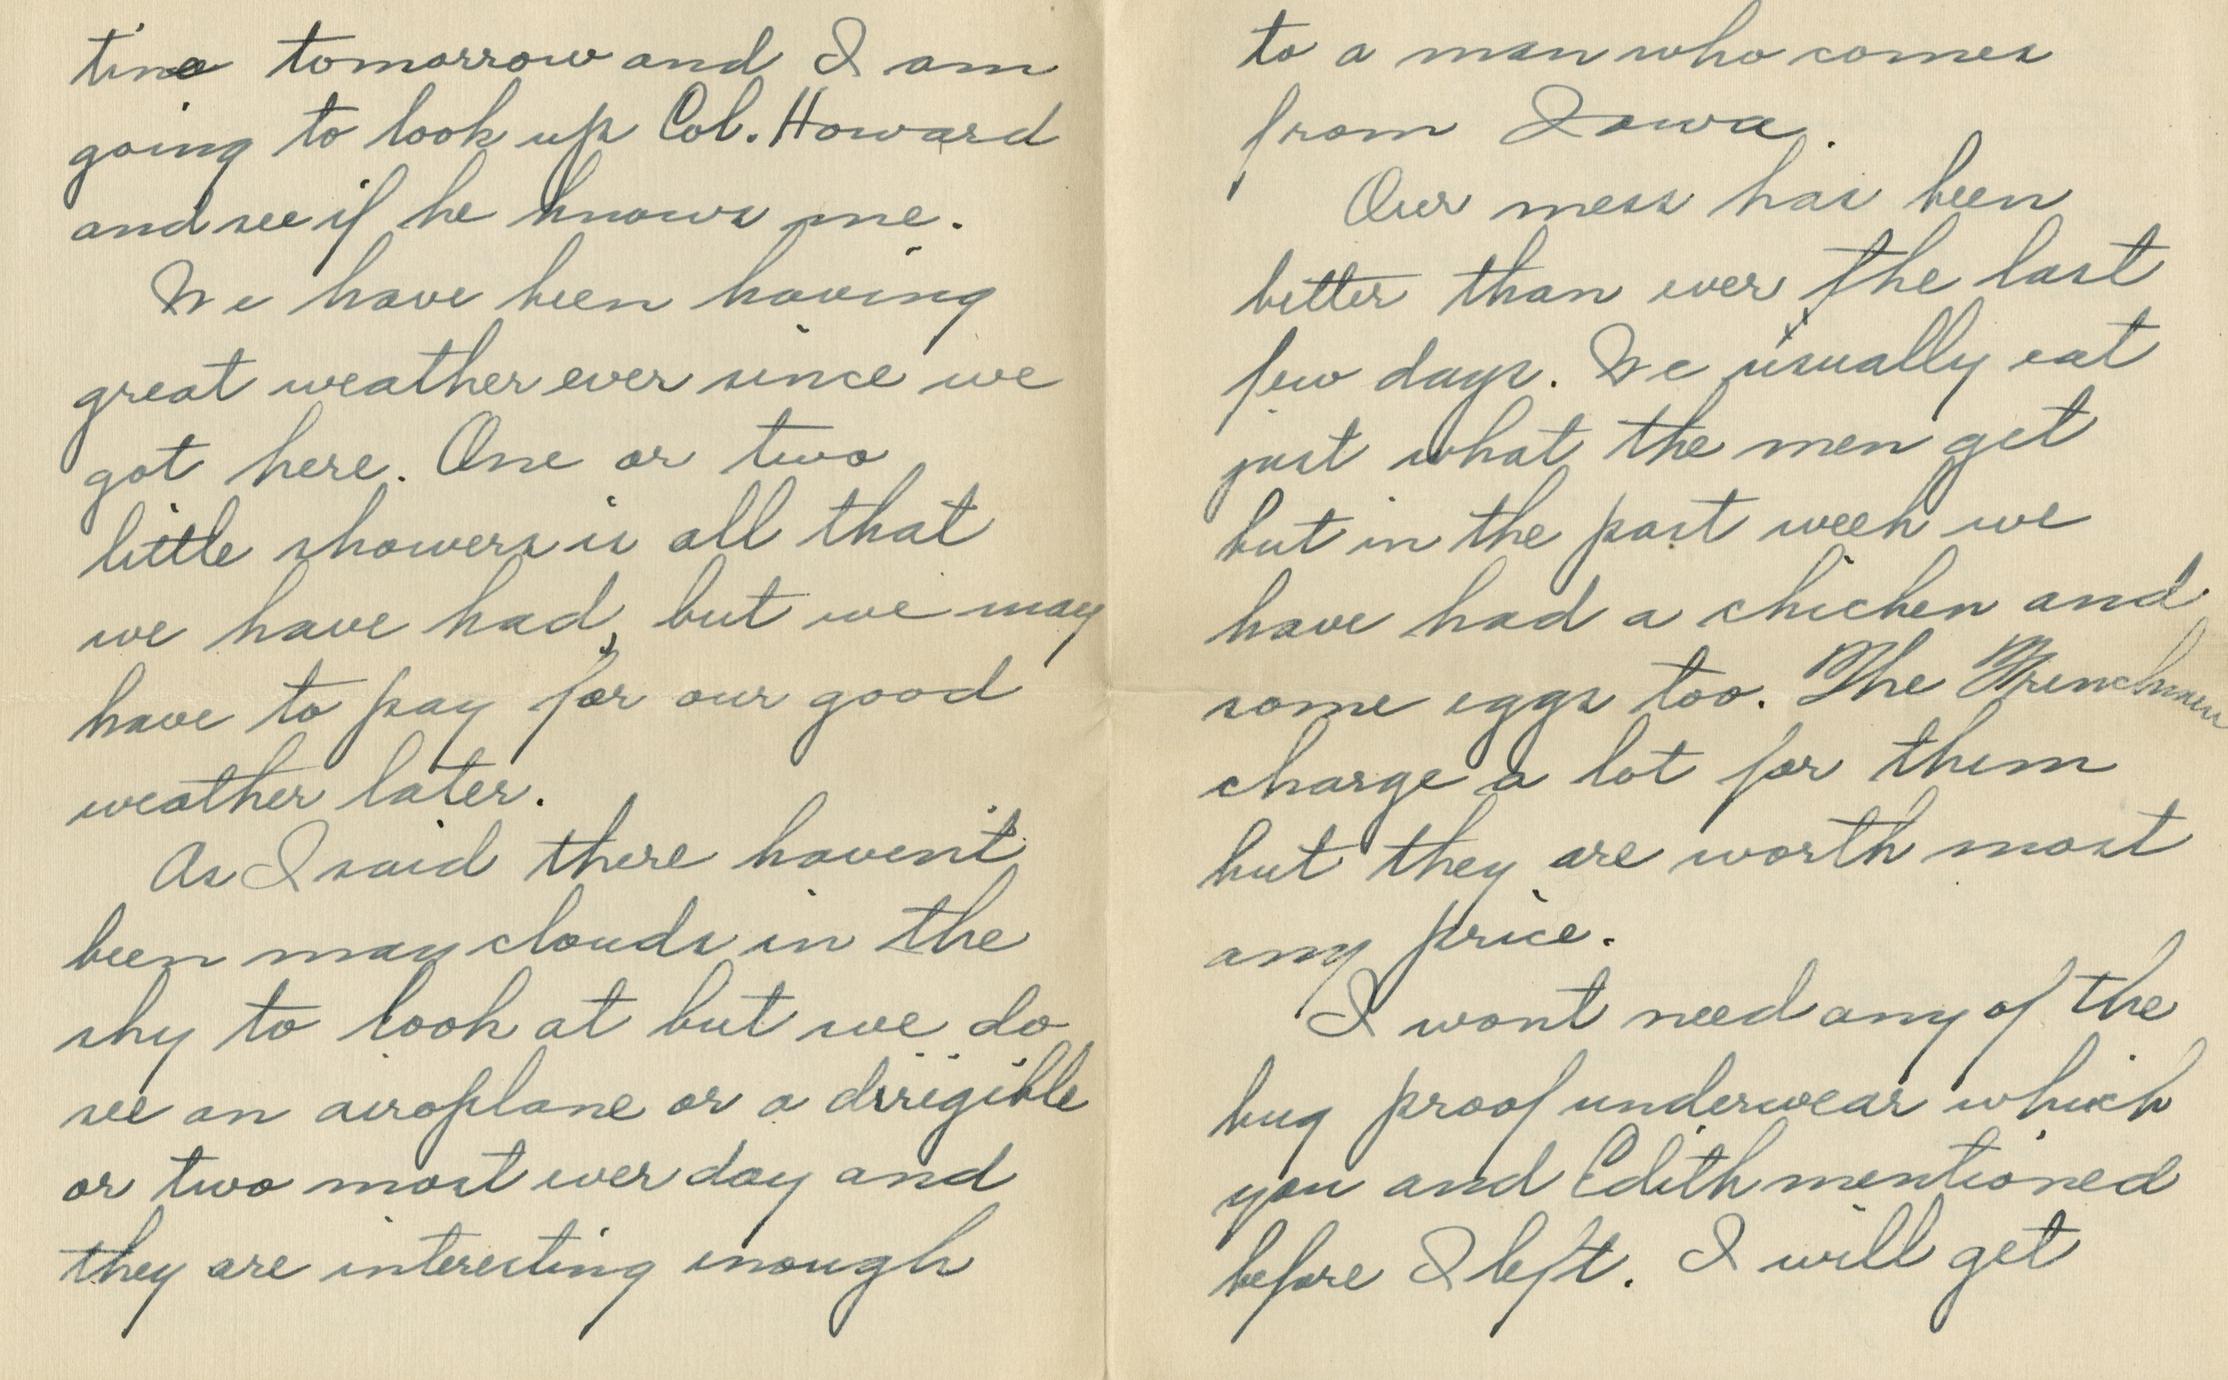 time tomorrow and I am
going to look up Col. Howard
and see if he knows me.
We have been having
great weather ever since we
got here. One or two
little showers is all that
we have had, but we may
have to pay for our good
weather later.
As I said there haven't
been may clouds in the
sky to look at but we do
see an airoplane or a dirigible
or two most ever day and
they are interesting enough
to a man who comes
from Iowa.
Our mess has been
better than ever the last
few days. We usually eat
just what the men get
but in the past week we
have had a chicken and
some eggs too. The Frenchmen
charge a lot for them
but they are worth most
any price.
I wont need any of the
bug proof underwear which
you and Edith mentioned
before I left. I will get